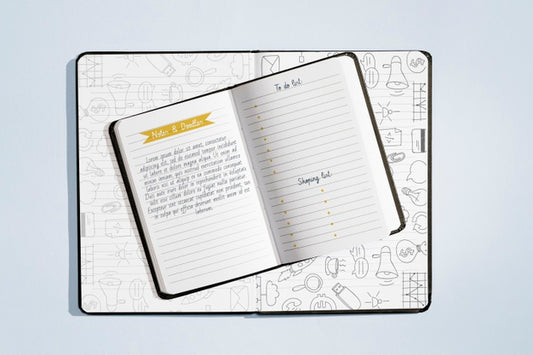 Notes & Doodles
Lorem ipsum dolor sit amet, consectetur
adipiscing elit, sed do eiusmod tempor incididunt
ut labore et dolore magna aliqua. Ut enim ad
minim veniam, quis nostrud exercitation ullamco
laboris nisi ut aliquip ex ea commodo consequat.
Duis aute irure dolor in reprehenderit in voluptate
velit esse cillum dolore eu fugiat nulla pariatur.
Excepteur sint occaecat cupidatat non proident, sunt
in culpa qui officia deserunt mollit anim id est
laborum.
To do list:
Shopping list: